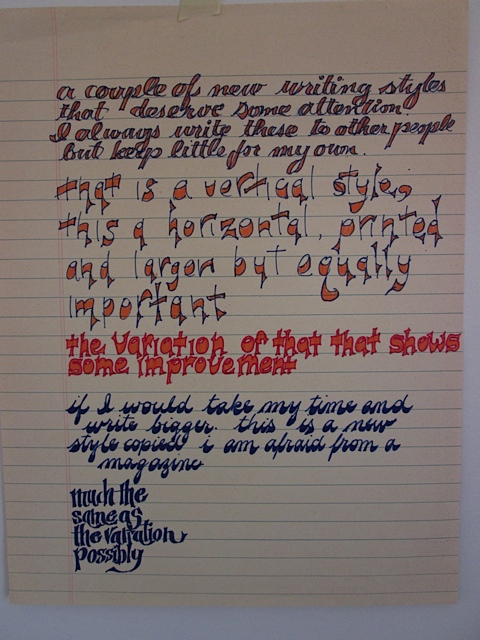 a couple of new writing styles
that deserve some attention.
I always write these to other people
but keep little for my own.
that is a vertical style,
this a horizontal, printed
and larger but equally
important
the variation of that that shows
some improvement
if I would take my time and
write bigger. this is a new
style copied i am afraid from a
magazine
much the
same as
the variation
possibly